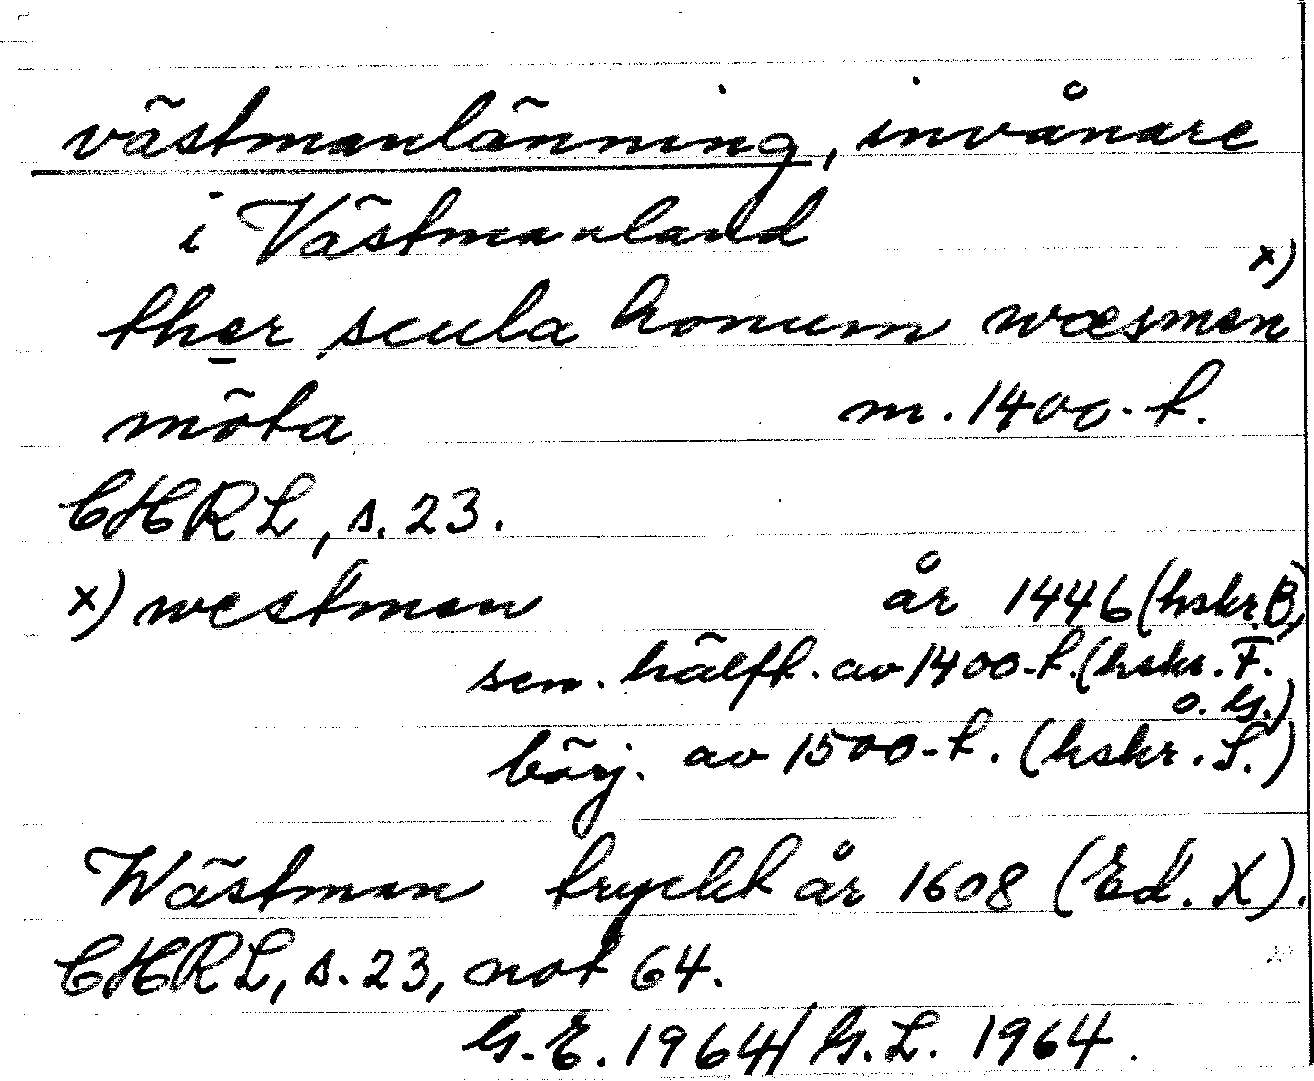 västmanlänning, invånare
i Västmanland
ther scula honum wæsmen x)
möta m. 1400-t.
CHRL, s. 23.
x) westmen år 1446 (hskr. B)
sen. hälft. av 1400-t. (hskr. F.
o. G.)
börj. av 1500-t. (hskr. S.)
Wästmen tryckt år 1608 (Ed. X).
CHRL, s. 23, not 64.
G.E. 1964/G.L. 1964.